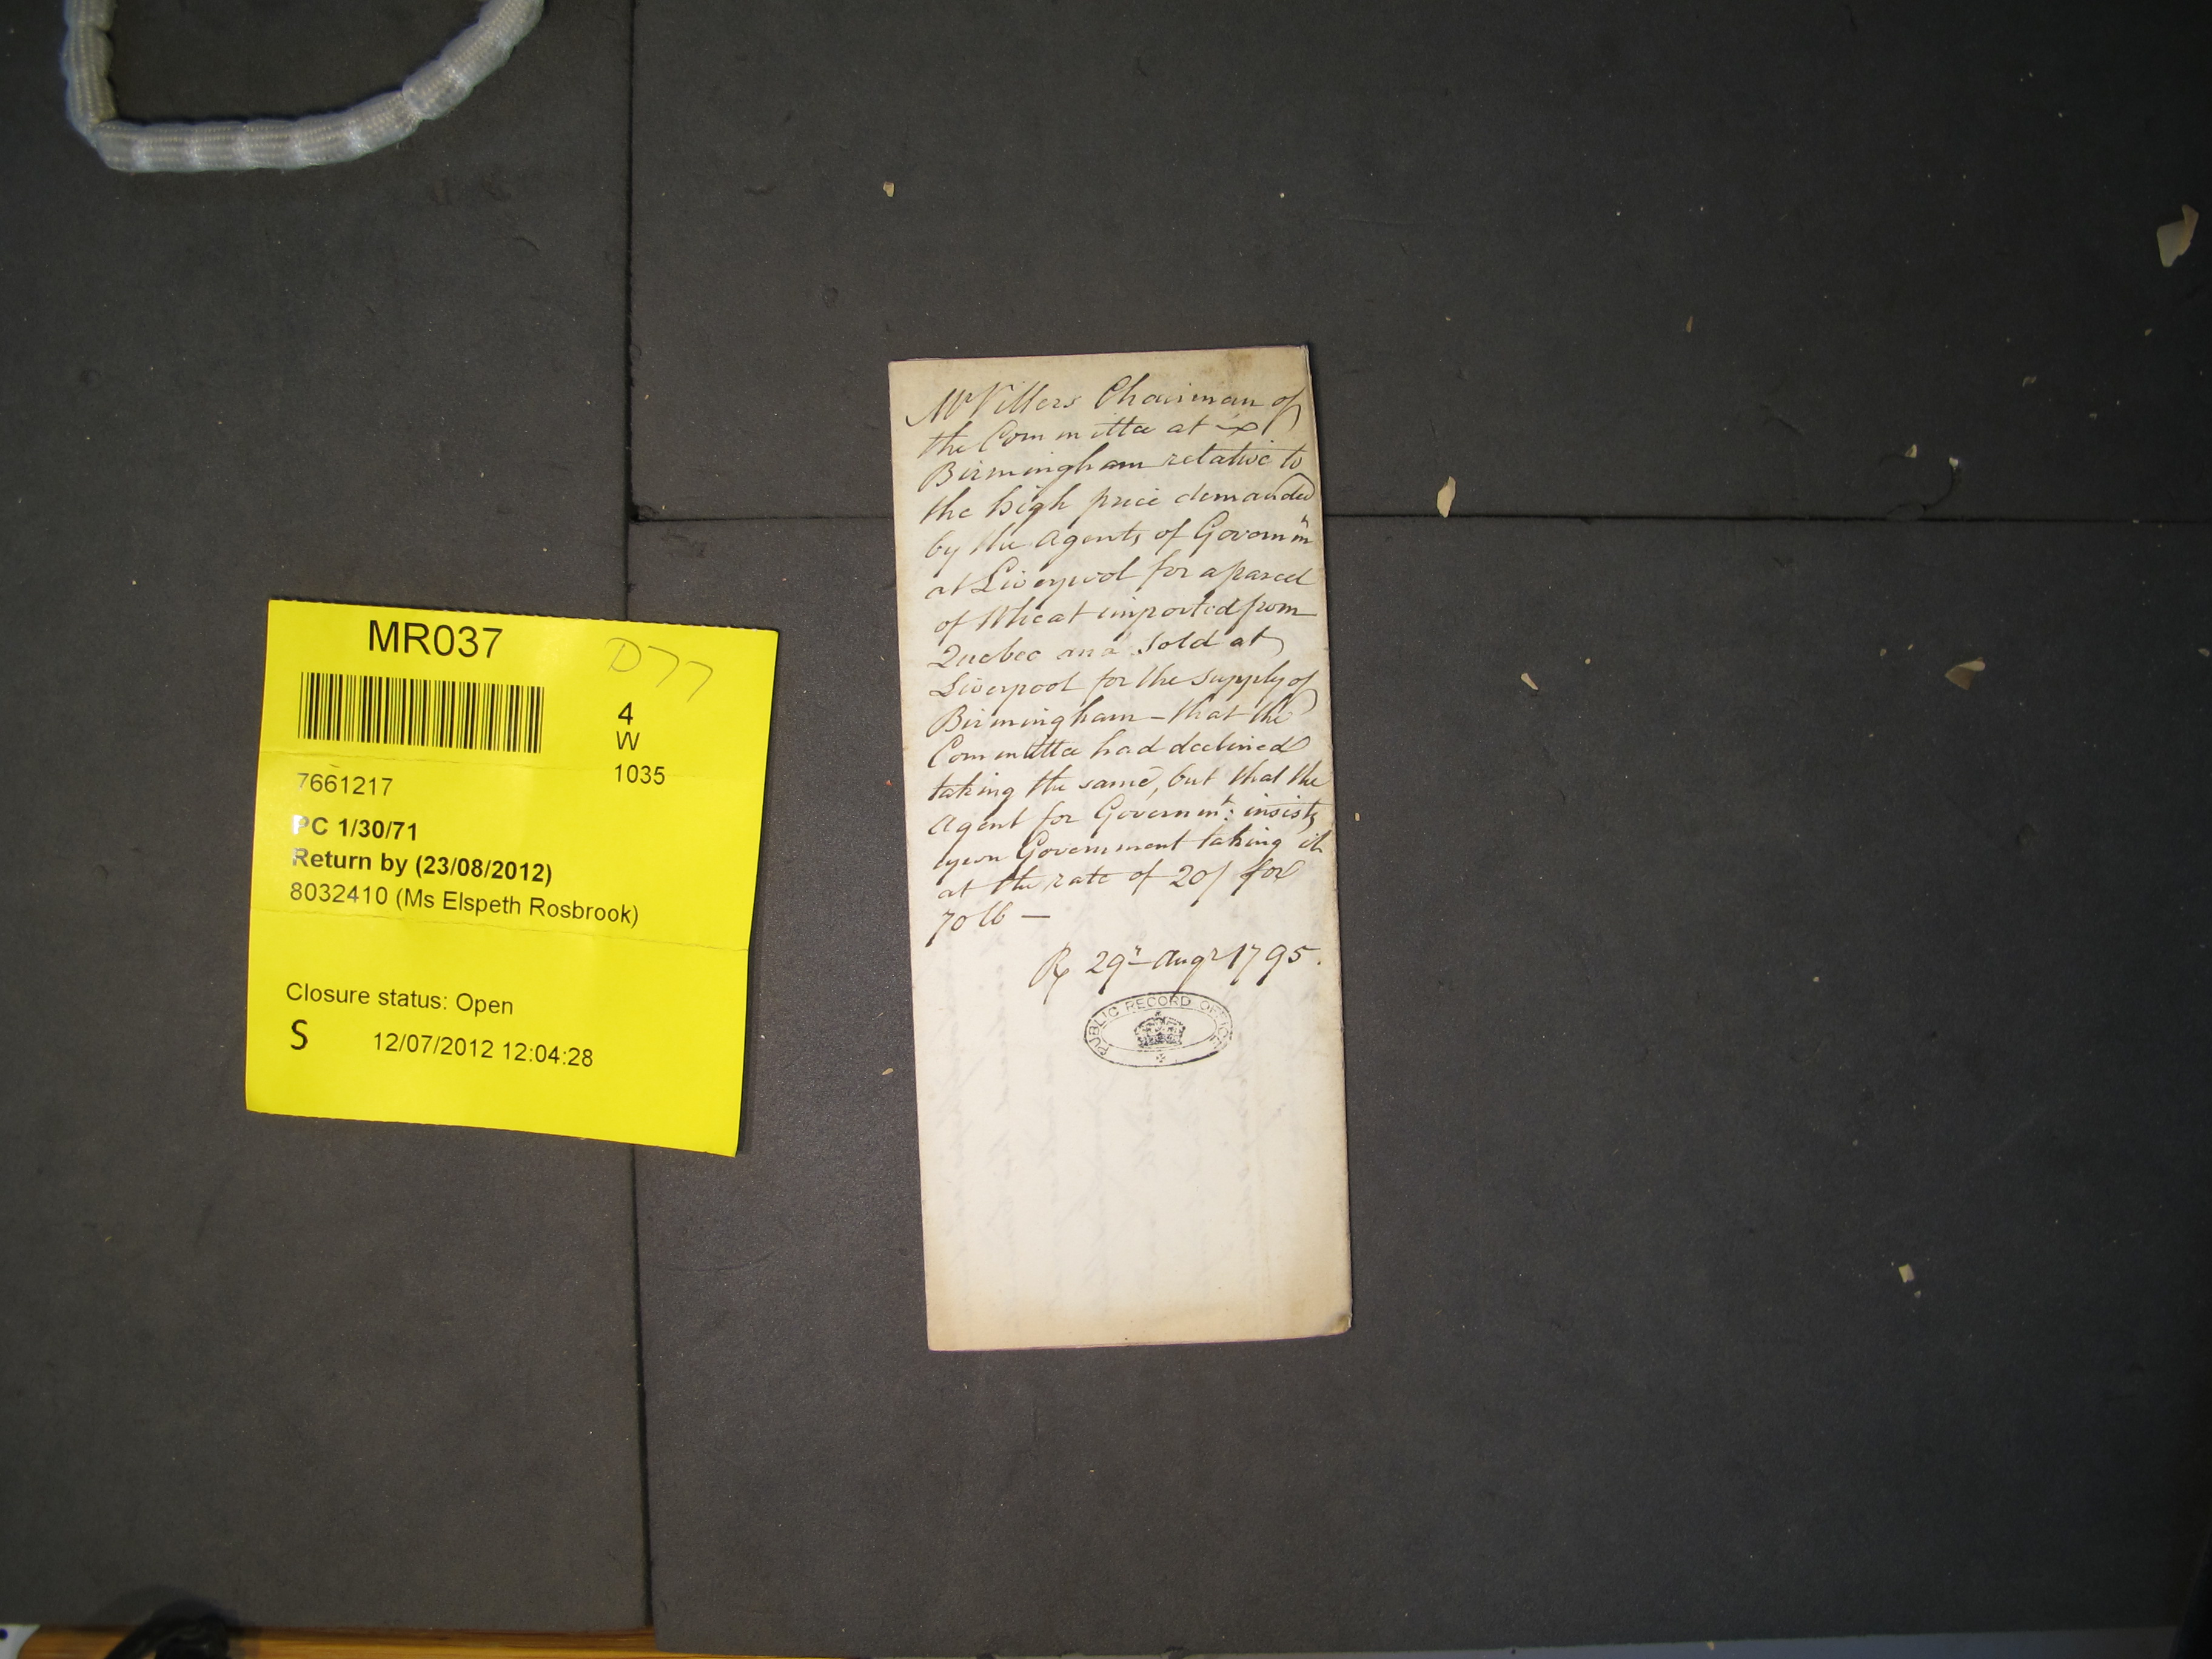 MR037
D77
4
W
1035
7661217
PC 1/30/71
Return by (23/08/2012)
8032410 (Ms Elspeth Rosbrook)
Closure status: Open
S 12/07/2012 12:04:28
Mr Villers Chairman of
the Committee at
Birmingham relative to
the high price demanded
by the Agents of Governmt
at Liverpool for a parcel
of Wheat imported from
Quebec and sold at
Liverpool for the supply of
Birmingham – that the
Committee had declined
taking the same, but that the
Agent for Governmt: insists
upon Government taking it
at the rate of 20/ for
70 lb —
Rx 29th Augt 1795.
PUBLIC RECORD OFFICE